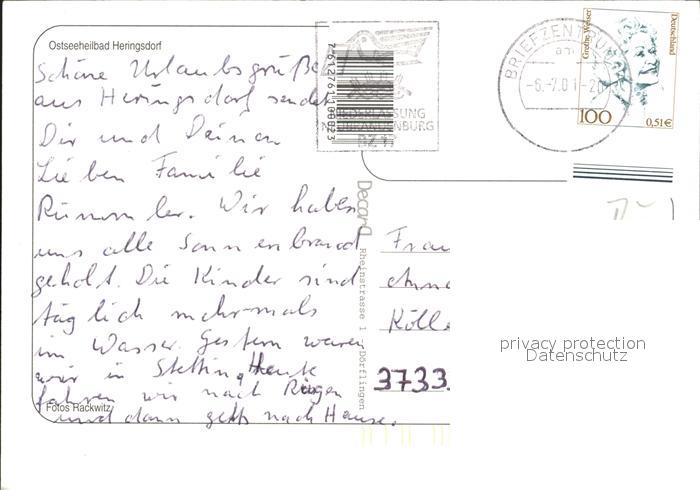 Ostseeheilbad Heringsdorf
Schöne Urlaubsgrüße
aus Heringsdorf sendet
Dir und Deinen
Lieben Familie
Rümmler. Wir haben
uns alle Sonnenbrand
geholt. Die Kinder sind
täglich mehrmals
im Wasser. Gestern waren
wir in Stettin, Heute
fahren wir nach Rügen
und dann gehts nach Hause.
Fotos Rackwitz
7612761100023
NIEDERLASSUNG
NEUBRANDENBURG
BZ 17
Decard Rheinstrasse 1 Dörflingen
BRIEFZENTRUM
-6.-7.01-20
Grethe Weiser
Deutschland
100
0,51€
Frau
Köll
3733
privacy protection
Datenschutz